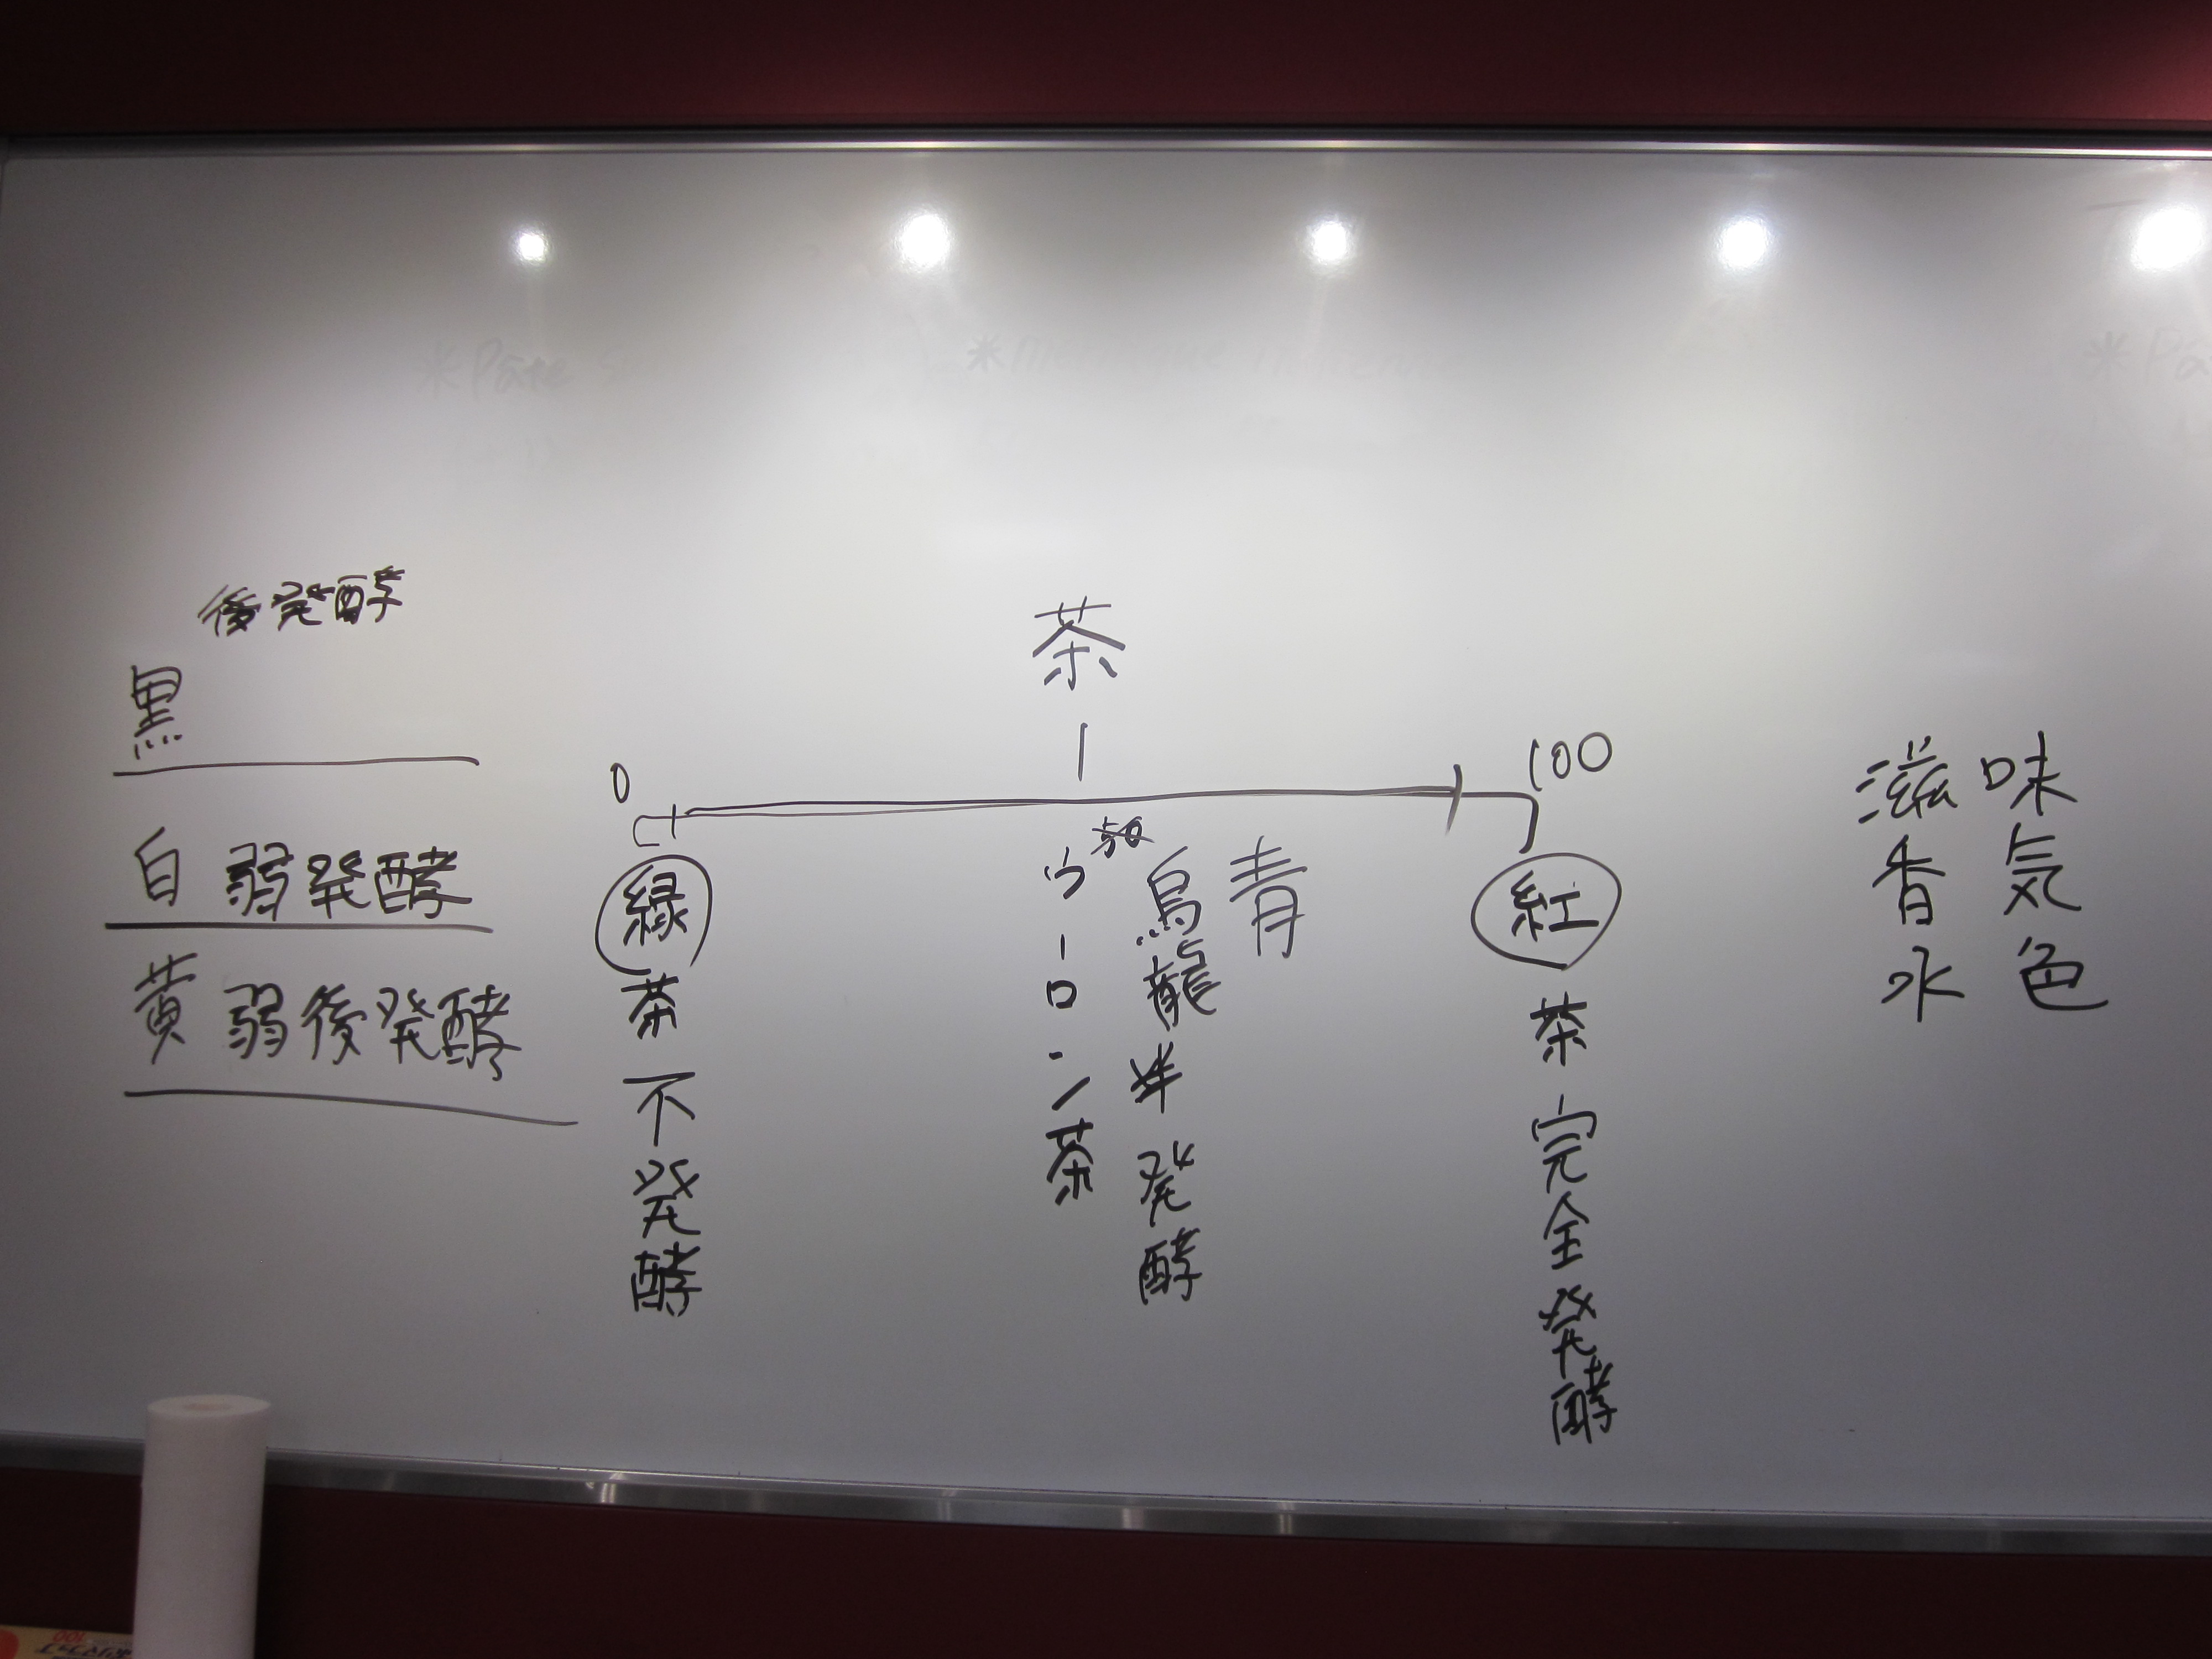 後発酵
黒
白 弱発酵
黄 弱後発酵
茶
0
100
緑茶 不発酵
ウーロン茶
烏龍 半発酵
青
紅茶 完全発酵
滋味
香気
水色
※Pâte